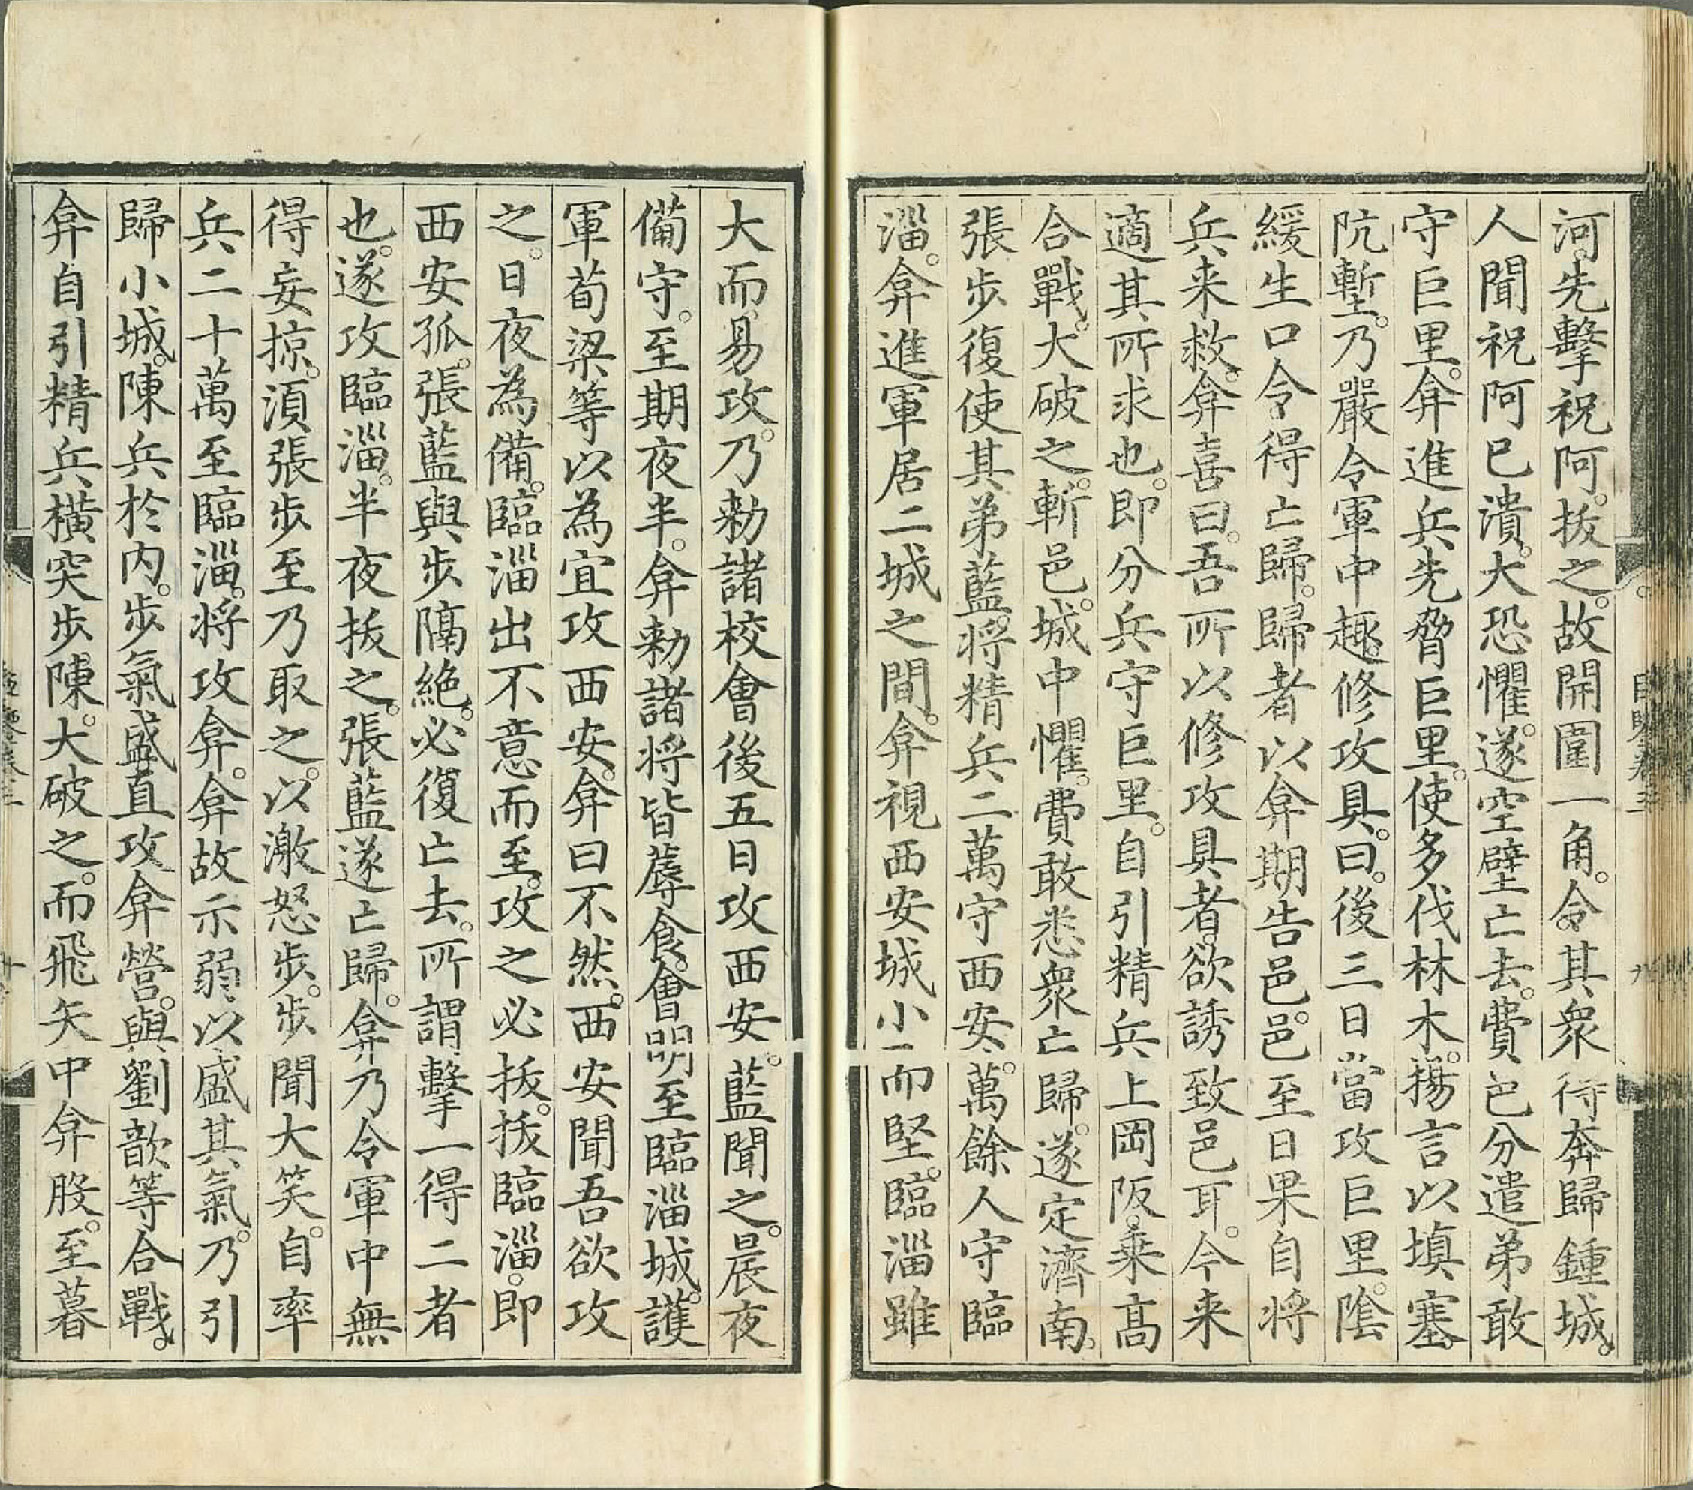 河。先擊祝阿。拔之。故開圍一角。令其衆得奔歸鍾城。
人聞祝阿已潰。大恐懼。遂空壁亡去。費邑分遣弟敢
守巨里。弇進兵先脅巨里。使多伐林木。揚言以塡塞
阬塹。乃嚴令軍中趣修攻具。曰。後三日當攻巨里。陰
緩生口令得亡歸。歸者以弇期告邑。邑至日果自將
兵来救。弇喜曰。吾所以修攻具者。欲誘致邑耳。今来
適其所求也。即分兵守巨里。自引精兵上岡阪。乗高
合戰。大破之。斬邑。城中懼。費敢悉衆亡歸。遂定濟南。
張步復使其弟藍。將精兵二萬守西安。萬餘人守臨
淄。弇進軍居二城之間。弇視西安城小而堅。臨淄雖
大而易攻。乃勑諸校會後五日攻西安。藍聞之。晨夜
備守。至期夜半。弇勑諸將皆蓐食。會明至臨淄城。護
軍荀梁等以為宜攻西安。弇曰不然。西安聞吾欲攻
之。日夜為備。臨淄出不意而至。攻之必拔。拔臨淄。即
西安孤。張藍與步隔絶。必復亡去。所謂擊一得二者
也。遂攻臨淄。半夜拔之。張藍遂亡歸。弇乃令軍中無
得妄掠。須張步至乃取之。以激怒步。步聞大笑。自率
兵二十萬至臨淄。將攻弇。弇故示弱。以盛其氣。乃引
歸小城。陳兵於内。步氣盛直攻弇營。與劉歆等合戰。
弇自引精兵橫突步陳。大破之。而飛矢中弇股。至暮